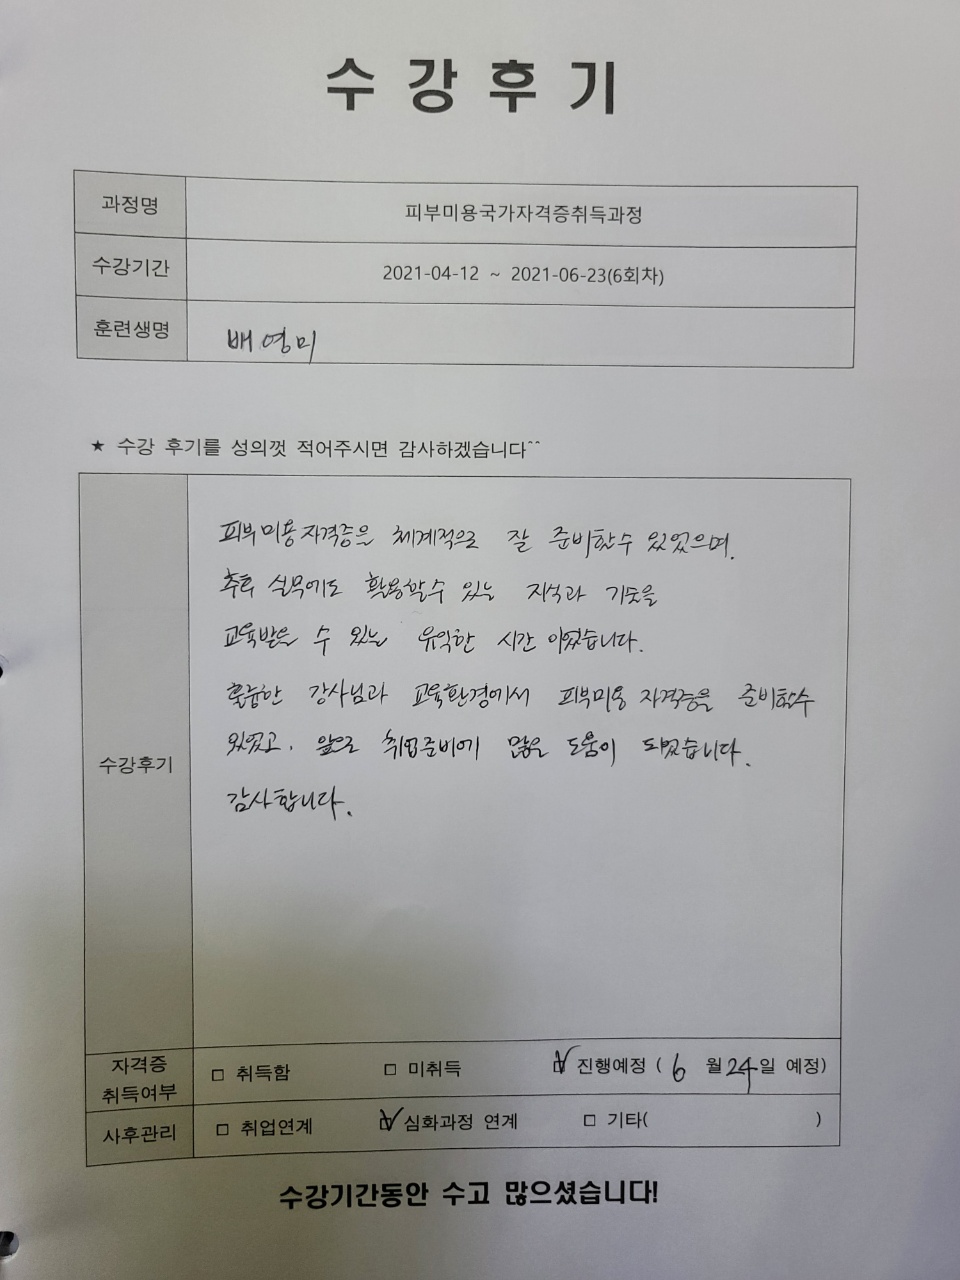 수 강 후 기
과정명 피부미용국가자격증취득과정
수강기간 2021-04-12 ~ 2021-06-23(6회차)
훈련생명 배영미
★ 수강 후기를 성의껏 적어주시면 감사하겠습니다^^
피부미용자격증을 체계적으로 잘 준비할수 있었으며.
추후 실무에도 활용할수 있는 지식과 기술을
교육받을 수 있는 유익한 시간 이었습니다.
훌륭한 강사님과 교육환경에서 피부미용 자격증을 준비할수
수강후기 있었고. 앞으로 취업준비에 많은 도움이 되었습니다.
감사합니다.
자격증
취득여부 □ 취득함 □ 미취득 ☑ 진행예정 ( 6 월 24일 예정)
사후관리 □ 취업연계 ☑ 심화과정 연계 □ 기타( )
수강기간동안 수고 많으셨습니다!